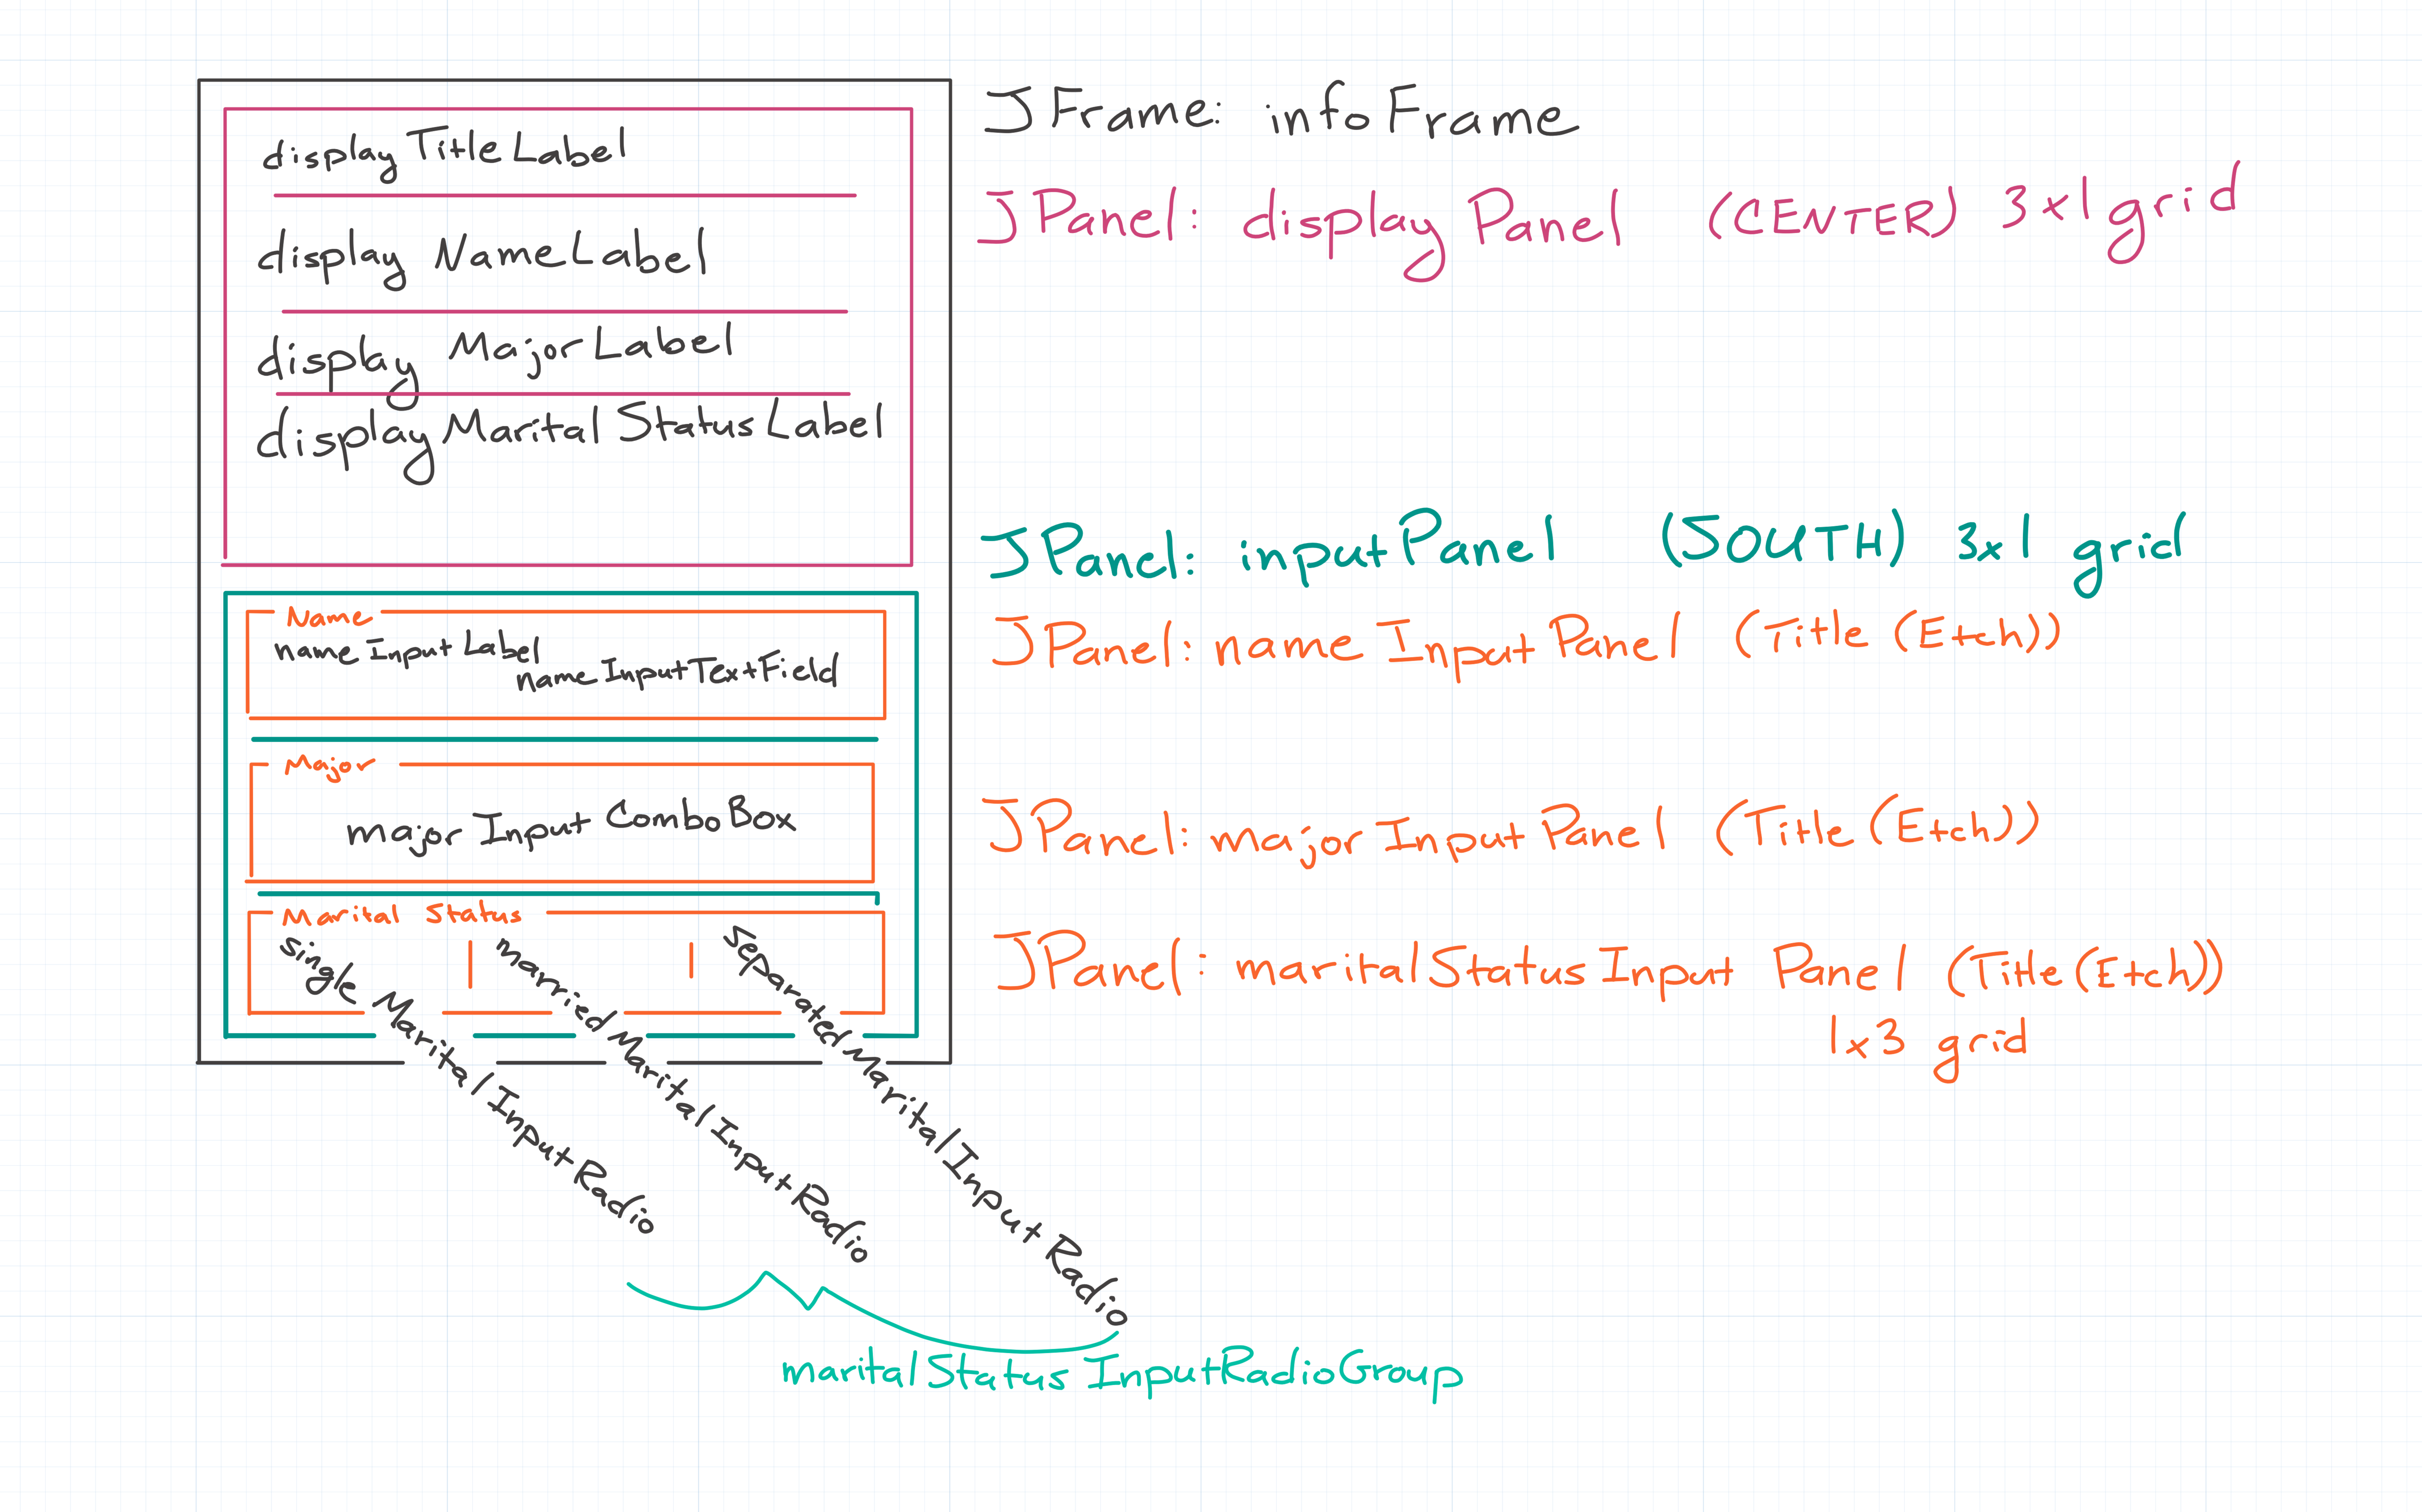 displayTitleLabel
displayNameLabel
displayMajorLabel
displayMaritalStatusLabel
Name
nameInputLabel
nameInputTextField
Major
majorInputComboBox
Marital Status
singleMaritalInputRadio
marriedMaritalInputRadio
separatedMaritalInputRadio
maritalStatusInputRadioGroup
JFrame: infoFrame
JPanel: displayPanel (CENTER) 3x1 grid
JPanel: inputPanel (SOUTH) 3x1 grid
JPanel: nameInputPanel (Title (Etch))
JPanel: majorInputPanel (Title (Etch))
JPanel: maritalStatusInputPanel (Title (Etch))
1x3 grid